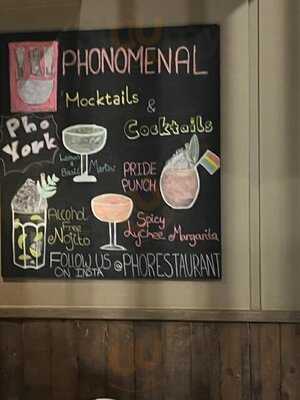 PHONOMENAL
Mocktails
&
Cocktails
Pho
York
Lemon
&
Basil Martini
PRIDE
PUNCH
Alcohol
Free
Nojito
Spicy
Lychee Margarita
FOLLOW US
ON INSTA @PHORESTAURANT